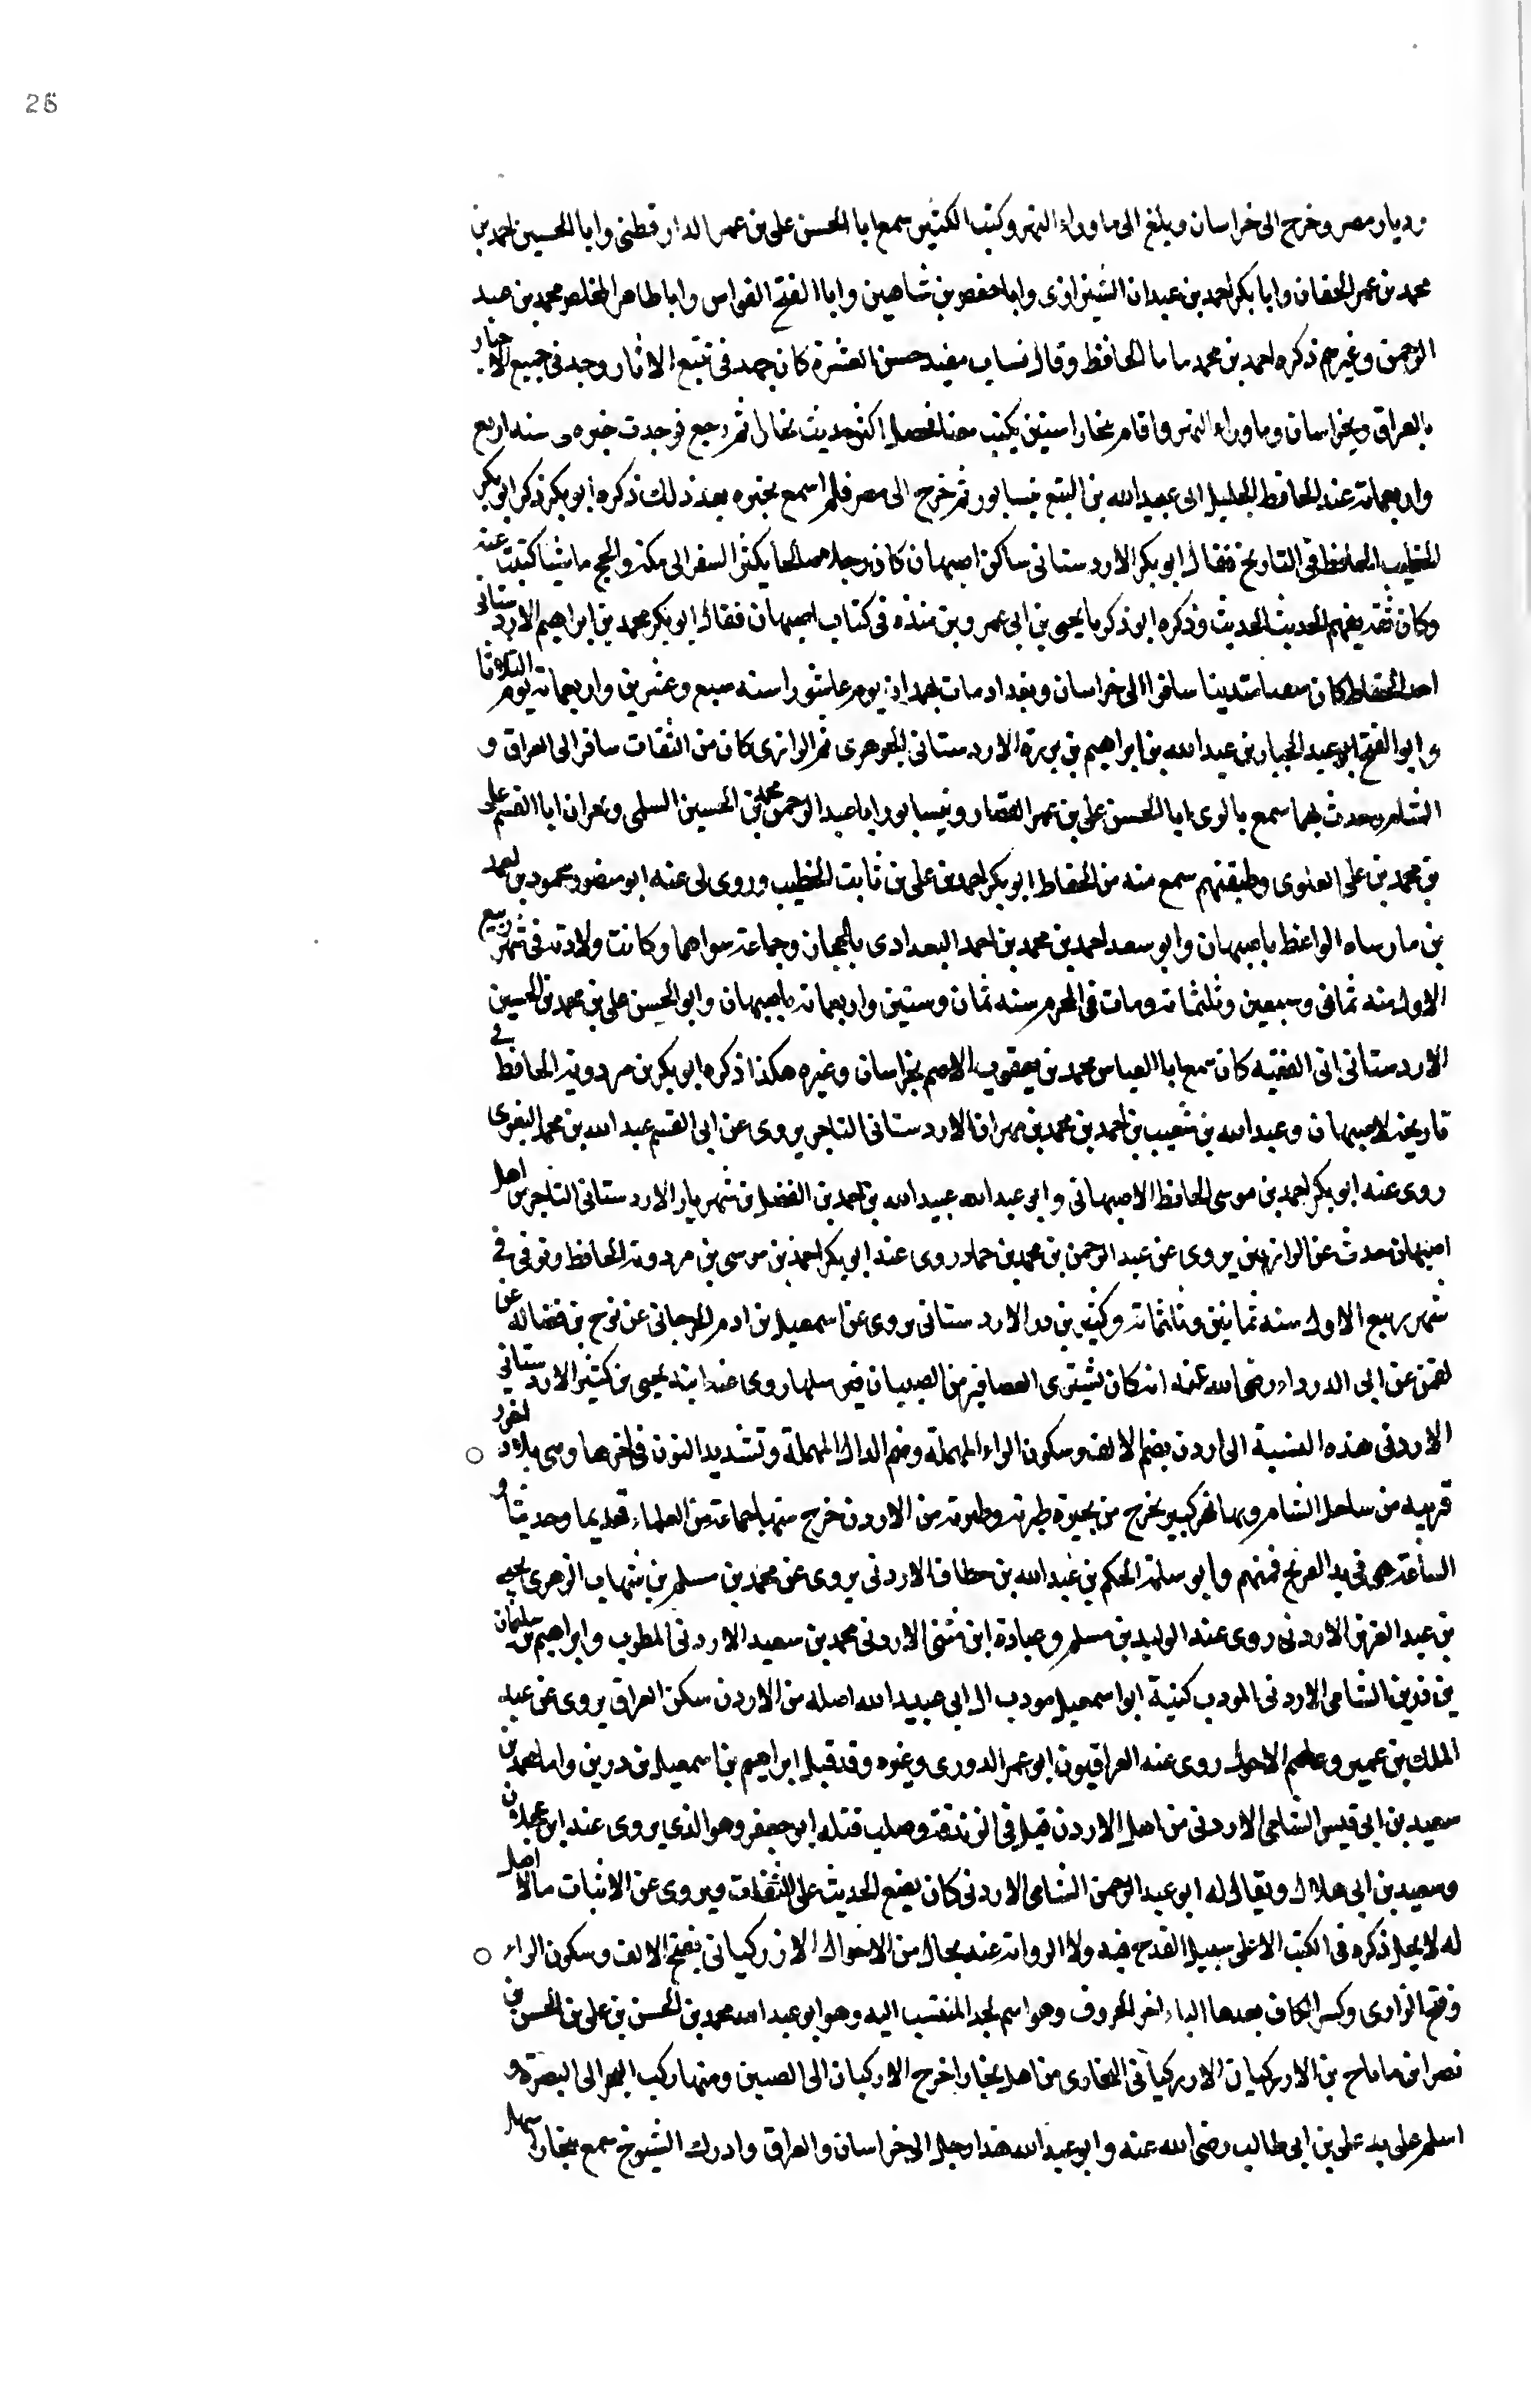 25
وديار مصر وخرج الى خراسان وبلغ الى ما وراء النهر وكتب الكثير سمع ابا الحسن على بن عمر الدارقطنى وابا الحسين احمد بن
محمد بن عمر الخفاف وابا بكر احمد بن عبدان الشيرازى وابا حفص بن شاهين وابا الفتح القواس وابا طاهر المخلص محمد بن عبد
الرحمن وغيرهم ذكره احمد بن محمد ماما الحافظ وقال شاب مفيد حسن العشرة كان جهد فى تتبع الاثار وجد فى جمع الاخبار
بالعراق وبخراسان وما وراء النهر واقام بخارا سنين يكتب معنا فحصل اكثر حديث بخارا ثم رجع فوجدت خبره فى سنه اربع
واربعمائة عند الحافظ الجليل ابى عبد الله بن البيع بنيسابور ثم خرج الى مصر فلم اسمع بخبره بعد ذلك ذكره ابو بكر ذكر ابو بكر
الخطيب الحافظ فى التاريخ فقال ابو بكر الاردستانى ساكن اصبهان كان رجلا صالحا يكثر السفر الى مكة والحج ماشيا كتبت عنه
وكان ثقة يفهم الحديث الحديث وذكره ابو زكريا يحيى بن ابى عمرو بن منده فى كتاب اصبهان فقال ابو بكر محمد بن ابراهيم الاردستانى
احد الحفاظ كان متدينا سافر الى خراسان وبغداد مات بهمدان يوم عاشورا سنه سبع وعشرين واربعمائة يوم الثلاثا
وابو الفتح ابو عبد الجبار بن عبد الله بن ابراهيم بن برزة الاردستانى الجوهرى ثم الرازى كان من الثقات سافر الى العراق و
الشام وحدث بهما سمع بالرى ابا الحسن على بن عمر القصار وبنيسابور ابا عبد الرحمن محمد بن الحسين السلمى وبحران ابا القسم على
بن محمد بن على العلوى وطبقتهم سمع منه من الحفاظ ابو بكر احمد بن على بن ثابت الخطيب وروى لى عنه ابو منصور محمود بن احمد
بن ماساه الواعظ باصبهان وابو سعد احمد بن محمد بن احمد البغدادى بالحجاز وجماعة سواهما وكانت ولادته فى شهر ربيع
الاول سنه ثمانى وسبعين وثلثمائة ومات فى المحرم سنه ثمان وستين واربعمائة باصبهان وابو الحسن على بن محمد بن الحسين
الاردستانى انى الفقيه كان سمع ابا العباس محمد بن يعقوب الاصم بخراسان وغيره هكذا ذكره ابو بكر بن مردويه الحافظ فى
تاريخه لاصبهان وعبد الله بن شعيب بن احمد بن محمد بن مهران الاردستانى التاجر يروى عن ابى القسم عبد الله بن محمد البغوى
روى عنه ابو بكر احمد بن موسى الحافظ الاصبهانى وابو عبد الله عبيد الله بن احمد بن الفضل بن شهريار الاردستانى التاجر من اهل
اصبهان حدث عن الرازيين يروى عن عبد الرحمن بن محمد بن حماد روى عنه ابو بكر احمد بن موسى بن مردويه الحافظ وتوفى فى
شهر ربيع الاول سنه ثمانين وثلثمائة وكثير بن الاردستانى يروى عن اسمعيل بن ادم الجرجانى عن فرج بن فضالة عن
لقمن عن ابى الدرداء رضى الله عنه انه كان يشترى العصافير من الصبيان فيرسلها روى عنه ابنه يحيى بن كثير الاردستانى
الاردنى هذه النسبة الى اردن بضم الالف وسكون الراء المهملة وضم الدال المهملة وتشديد النون فى اخرها وهى بلاد الغور
قريبه من ساحل الشام وبها نهر كبير يخرج من بحيرة طبرية وطبرية من الاردن خرج منها جماعة من العلماء قديما وحديثا و
الساعة هى فى يد الفرنج فمنهم وابو سلمة الحكم بن عبد الله بن خطاف الاردنى يروى عن محمد بن مسلم بن شهاب الزهرى يحيى
بن عبد العزيز الاردنى روى عنه الوليد بن مسلم وعبادة ابن نسى الاردنى محمد بن سعيد الاردنى المصلوب وابراهيم بن سليمان
بن رزين الشامى الاردنى المودب كنيته ابو اسمعيل مودب ال ابى عبيد الله اصله من الاردن سكن العراق يروى عن عبد
الملك بن عمير وعاصم الاحول روى عنه العراقيون ابو عمر الدورى وغيره وقد قيل ابراهيم بن اسمعيل بن رزين واما محمد بن
سعيد بن ابى قيس الشامى الاردنى من اهل الاردن قتل فى الزندقة وصلب قتله ابو جعفر وهو الذى يروى عنه ابن عجلان
وسعيد بن ابى هلال ويقال له ابو عبد الرحمن الشامى الاردنى كان يضع الحديث على الثقات ويروى عن الاثبات ما لا اصل
له لا يحل ذكره فى الكتب الا على سبيل القدح فيه ولا الرواية عنه بحال من الاحوال الارزكيانى بفتح الالف وسكون الراء
وفتح الزاى وكسر الكاف بعدها الياء اخر الحروف وهو اسم لجد المنتسب اليه وهو ابو عبد الله محمد بن الحسن بن على بن الحسن بن
نصر ابن ماماح بن الارزكيان الارزكيانى البخارى من اهل بخارا خرج الارزكيان الى الصين ومنها ركب البحر الى البصرة و
اسلم على يد على بن ابى طالب رضى الله عنه وابو عبد الله هذا رحل الى خراسان والعراق وادرك الشيوخ سمع ببخارا سهل